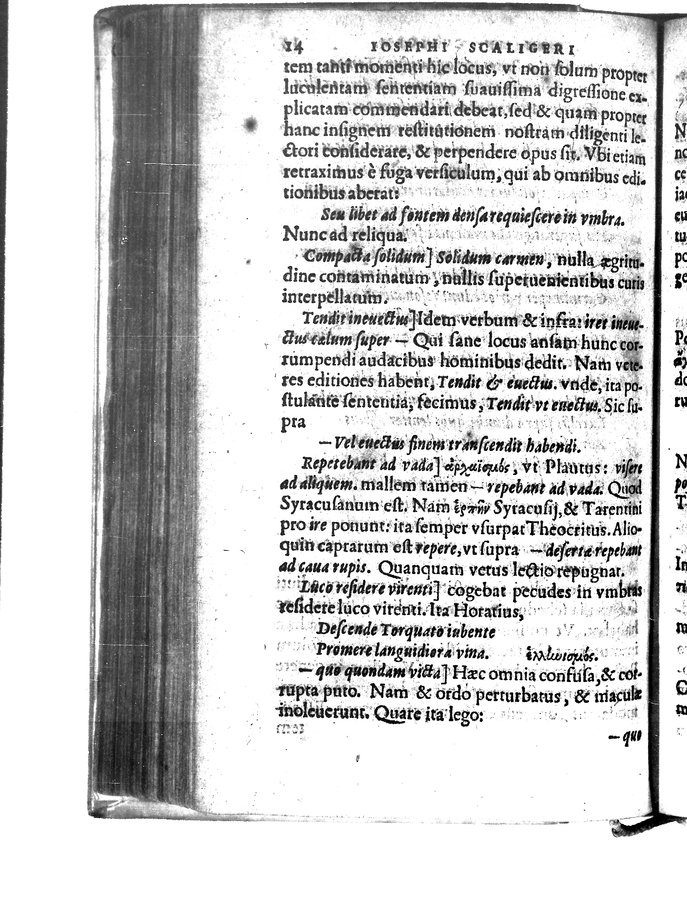 14 IOSEPHI SCALIGERI
tem tanti momenti hic locus, vt non solum propter
luculentam sententiam suauissima digressione ex-
plicatam commendari debeat, sed & quam propter
hanc insignem restitutionem nostram diligenti le-
ctori considerare, & perpendere opus sit. Vbi etiam
retraximus è fuga versiculum, qui ab omnibus edi-
tionibus aberat:
Seu libet ad fontem densa requiescere in vmbra.
Nunc ad reliqua.
Compacta solidum] Solidum carmen, nulla ægritu-
dine contaminatum, nullis superuenientibus curis
interpellatum.
Tendit ineuectus] Idem verbum & infra: iret ineue-
ctus cælum super — Qui sane locus ansam hunc cor-
rumpendi audacibus hominibus dedit. Nam vete-
res editiones habent, Tendit & euectus. vnde, ita po-
stulante sententia, fecimus, Tendit vt euectus. Sic su-
pra
— Vel euectus finem transcendit habendi.
Repetebant ad vada] ἀρχαϊσμὸς, vt Plautus: visere
ad aliquem. mallem tamen — repebant ad vada. Quod
Syracusanum est. Nam ἕρπην Syracusij, & Tarentini
pro ire ponunt: ita semper vsurpat Theocritus. Alio-
quin caprarum est repere, vt supra — deserta repebant
ad caua rupis. Quanquam vetus lectio repugnat.
Luco residere virenti] cogebat pecudes in vmbras
residere luco virenti. Ita Horatius,
Descende Torquato iubente
Promere languidiora vina. ἑλλωισμὸς.
— quo quondam victa] Hæc omnia confusa, & cor-
rupta puto. Nam & ordo perturbatus, & maculæ
inoleuerunt. Quare ita lego:
— quo